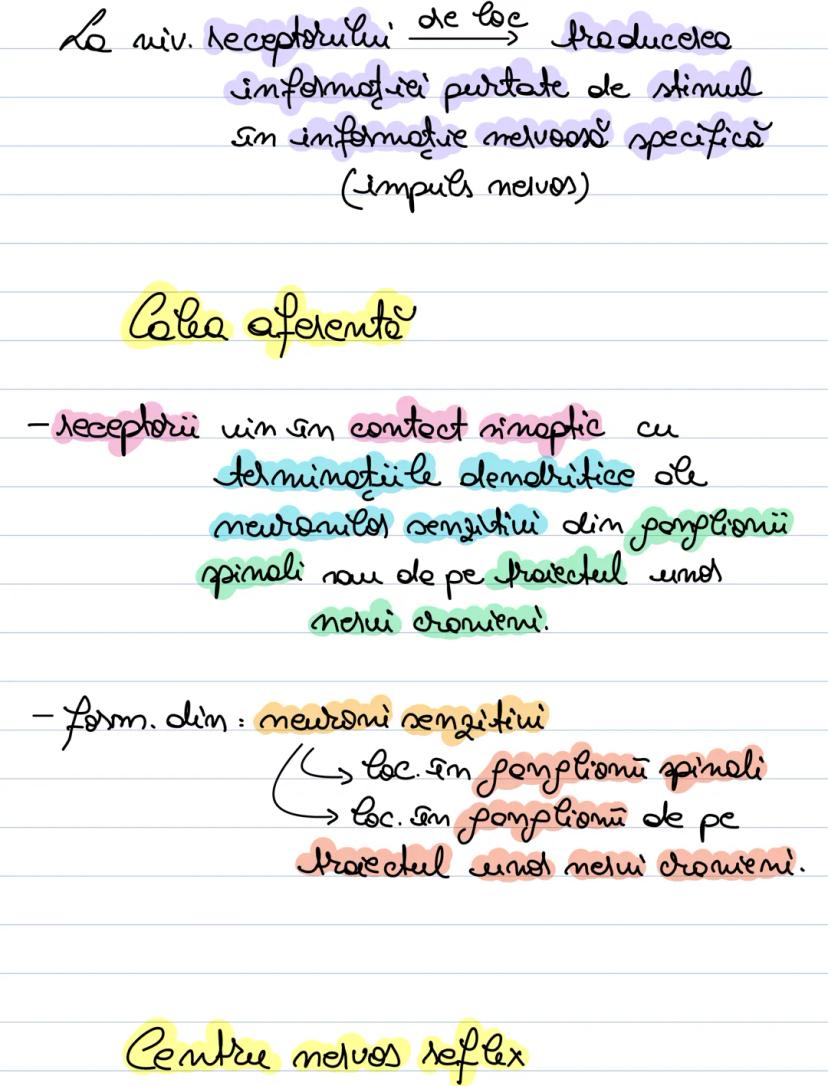 La niv. receptorului are loc → traducerea
informației purtate de stimul
în informație nervoasă specifică
(impuls nervos)
Calea aferentă
- receptorii vin în contact sinaptic cu
terminațiile dendritice ale
neuronilor senzitivi din ganglionii
spinali sau de pe traiectul unor
nervi cranieni.
- form. din: neuroni senzitivi
→ loc. în ganglionii spinali
→ loc. în ganglionii de pe
traiectul unor nervi cranieni.
Centru nervos reflex